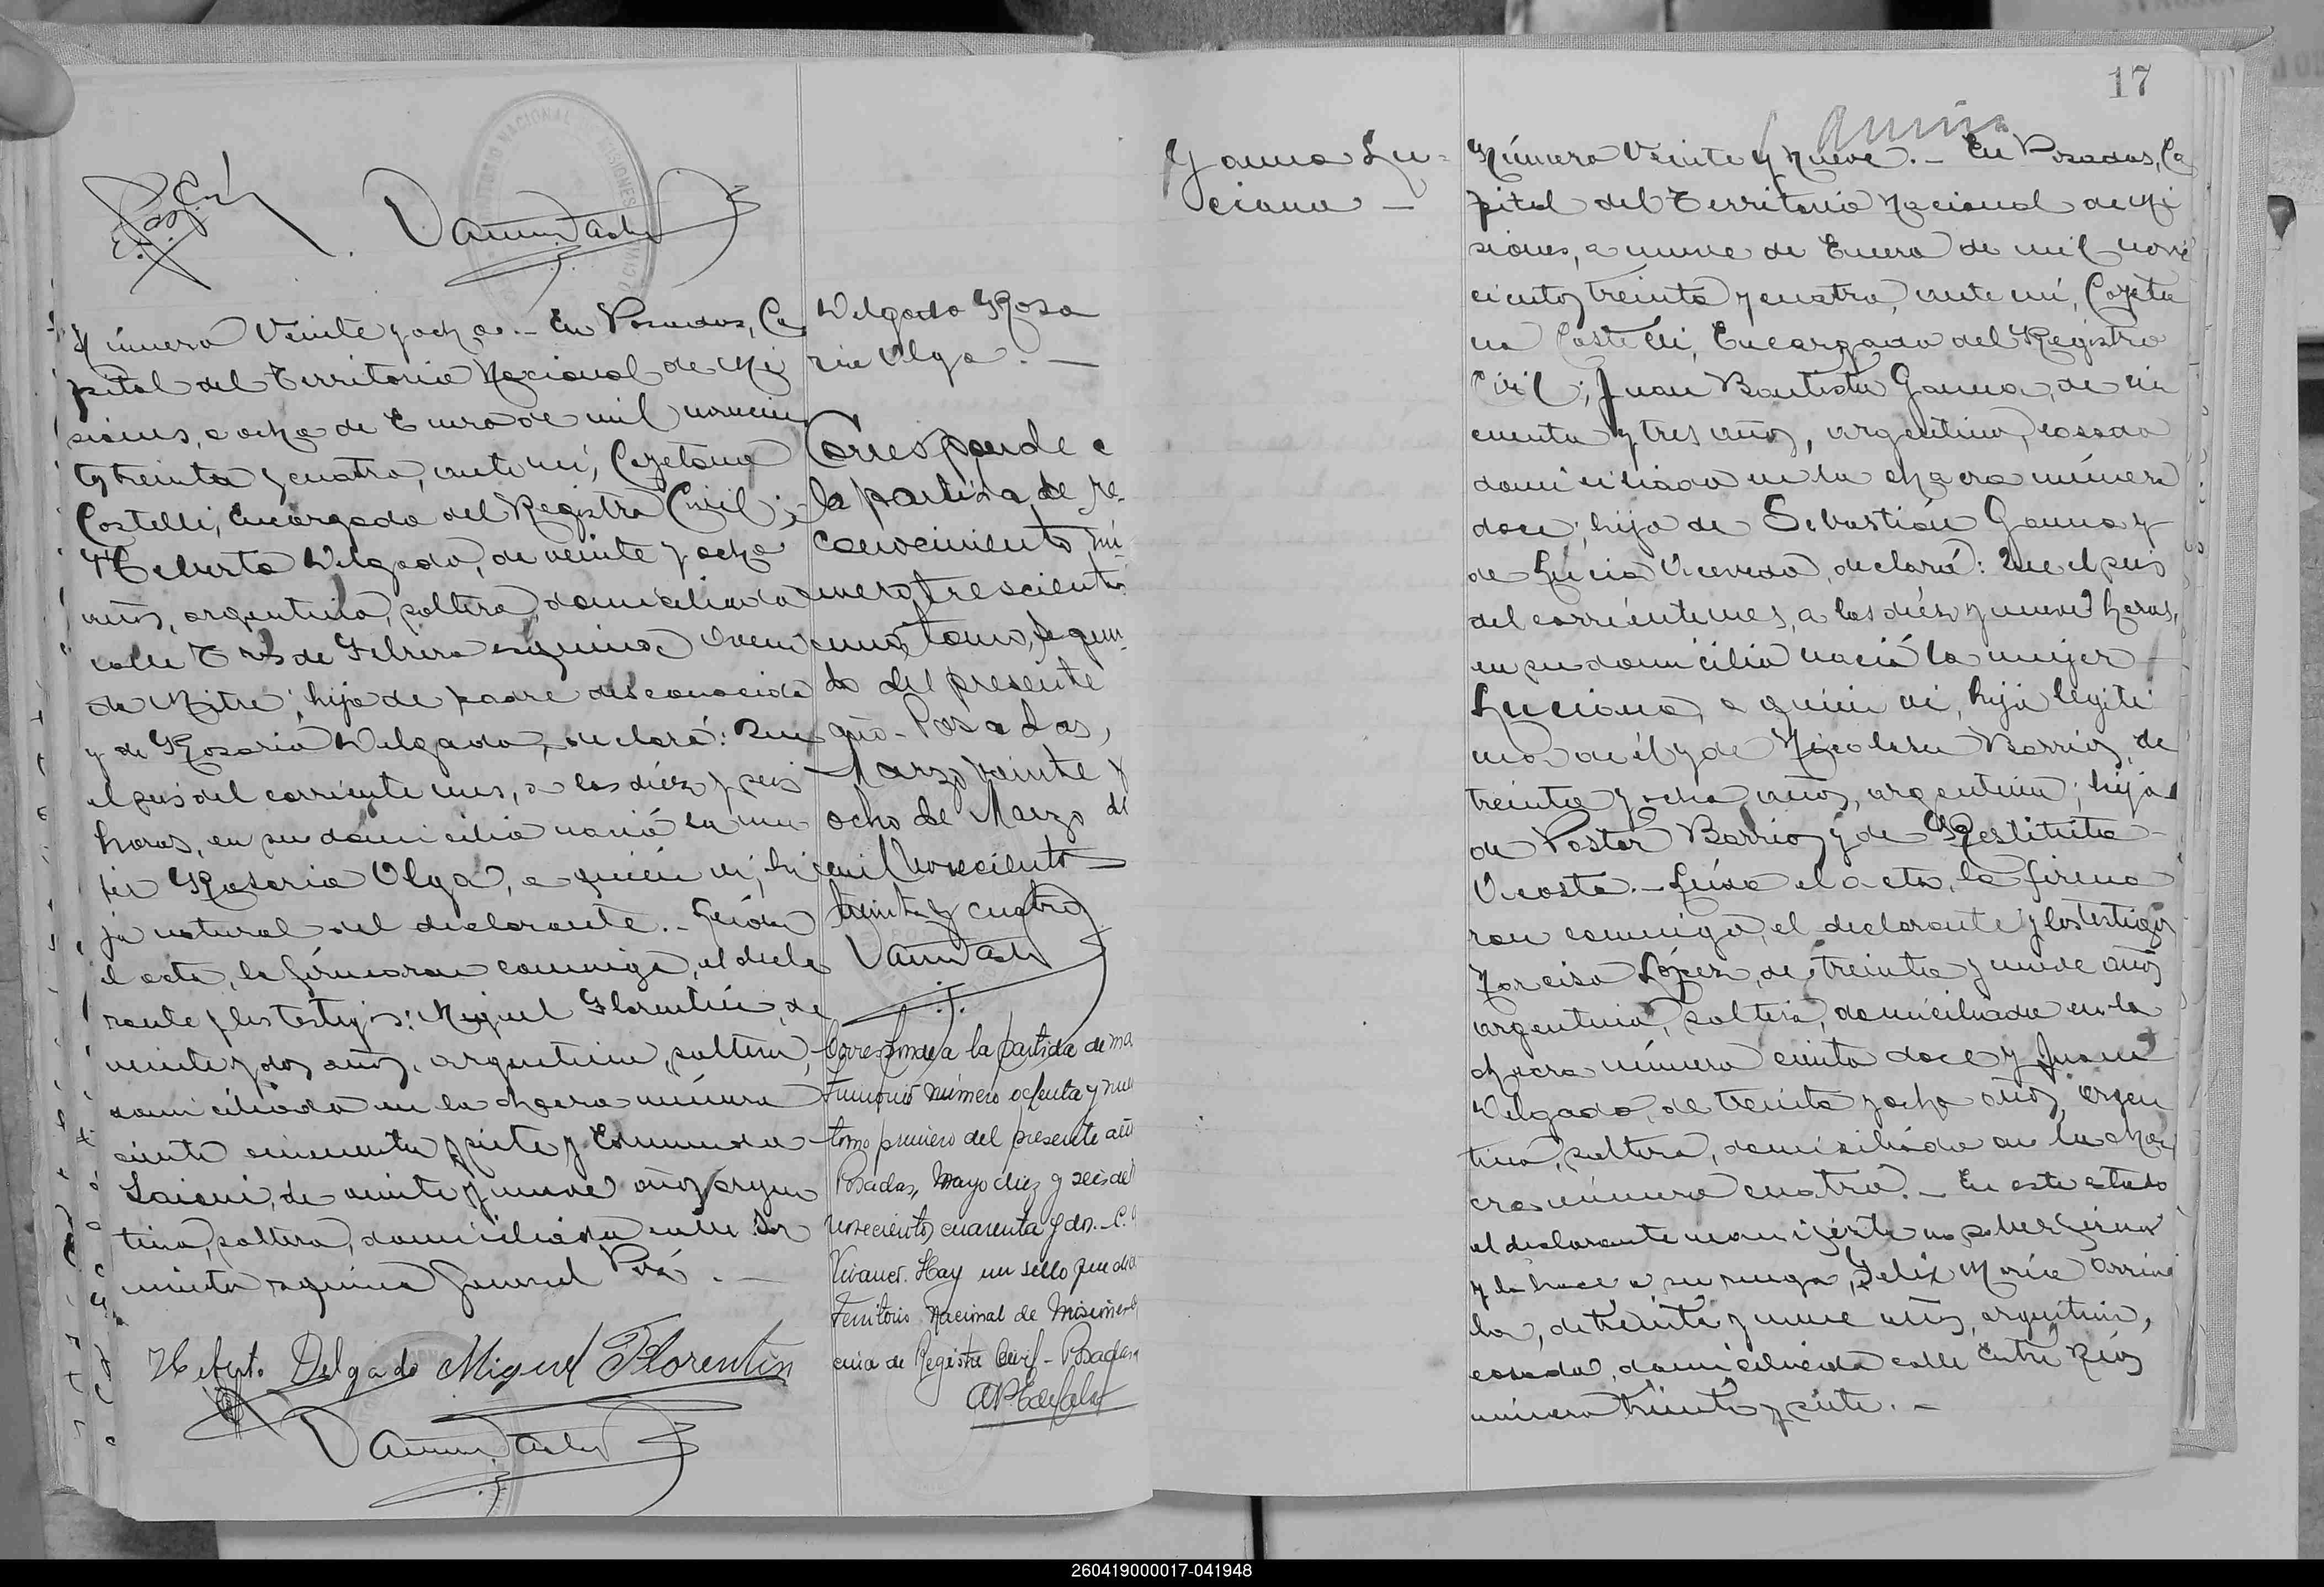 Número Veinte y ocho.- En Posadas, Ca
pital del Territorio Nacional de Mi
siones, a ocho de Enero de mil novecien
tos treinta y cuatro, ante mí, Cayetano
Castelli, Encargado del Registro Civil;
Heberto Delgado, de veinte y ocho
años, argentino, soltero, domiciliado
calle Tres de Febrero esquina Aveni
da Mitre, hijo de padre desconocido
y de Rosario Delgado, declaró: Que
el seis del corriente mes, a las diéz y seis
horas, en su domicilio nació la mu
jer Rosario Olga, a quién ví, hi
ja natural del declarante.- Leída
el acta, la firmaron conmigo, el decla
rante y los testigos: Miguel Florentín, de
veinte y dos años, argentino, soltero,
domiciliado en la chacra número
ciento cincuenta y siete y Edmundo
de veinte y nueve años, argen
tino, soltero, domiciliado calle Sar
miento esquina General Paz.-
Heberto Delgado Miguel Florentín
Delgado Rosa
rio Olga.-
Corresponde a
la partida de re-
conocimiento nú-
mero trescientos
uno, tomo segun-
do del presente
año.- Posadas,
Marzo veinte y
ocho de Marzo de
mil novecientos
treinta y cuatro
Corresponde a la partida de ma
trimonio número ochenta y nue
tomo primero del presente año
Posadas, Mayo diez y seis de
novecientos cuarenta y dos.- C.
Vivanco. Hay un sello que dice
Territorio Nacional de Misiones
cina de Registro Civil - Posadas
17
Gauna Lu-
ciana -
Número Veinte y Nueve.- En Posadas, Ca
pital del Territorio Nacional de Mi
siones, a nueve de Enero de mil nove
cientos treinta y cuatro, ante mí, Cayeta
no Castelli, Encargado del Registro
Civil; Juan Bautista Gauna, de cin
cuenta y tres años, argentino, casado
domiciliado en la chacra número
doce; hijo de Sebastián Gauna y
de Lucía Acevedo, declaró: Que el seis
del corriente mes, a las diéz y nueve horas,
en su domicilio nació la mujer
Luciana, a quién ví, hija legíti
ma de él y de Nicolasa Barrios, de
treinta y ocho años, argentina; hija
de Pastor Barrios y de Restituta
Acosta.- Leída el acta, la firma
ron conmigo, el declarante y los testigos
Narciso López, de treinta y nueve años
argentino, soltero, domiciliado en la
chacra número ciento doce y Juan
Delgado, de treinta y ocho años, argen
tino, soltero, domiciliado en la cha
cra número cuatro.- En este estado
el declarante manifiesta no saber firmar
y lo hace a su ruego, Felix María
de treinta y nueve años, argentino,
casado, domiciliado calle Entre Ríos
número treinta y siete.-
260419000017-041948